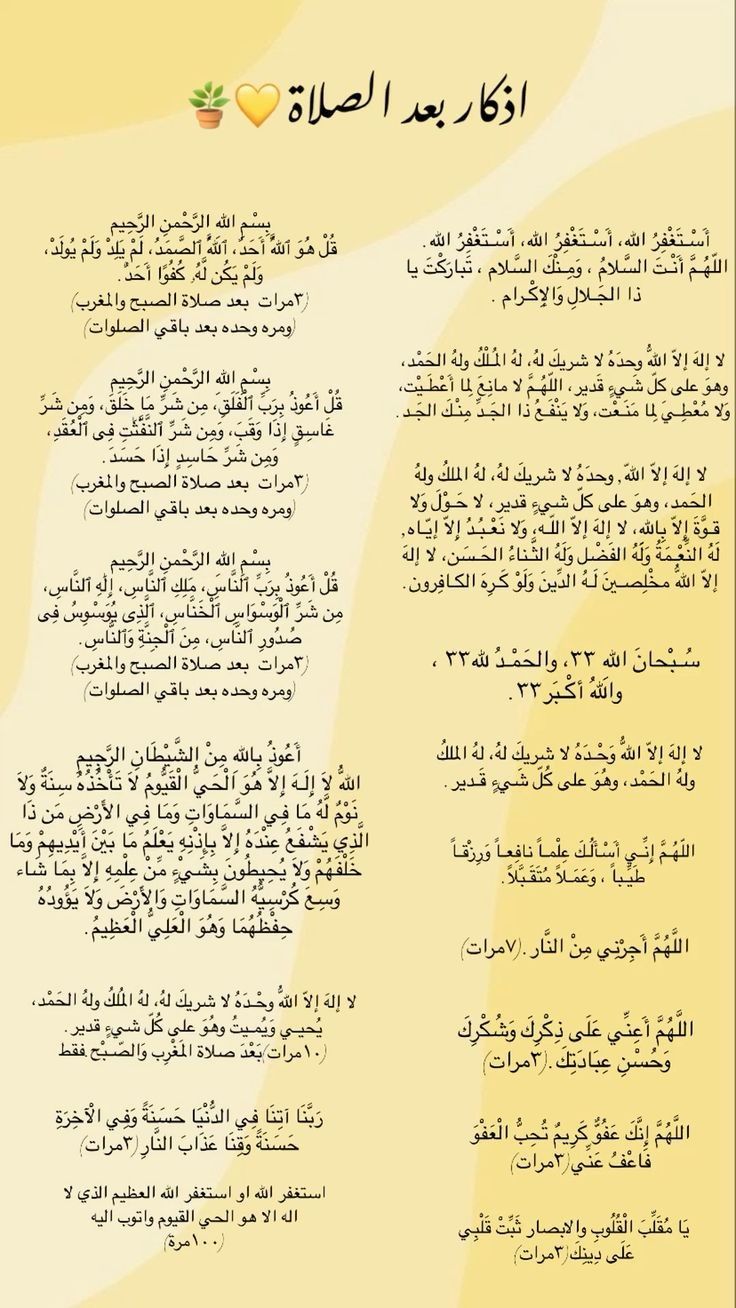 اذكار بعد الصلاة 💛🪴
أَسْتَغْفِرُ الله، أَسْتَغْفِرُ الله، أَسْتَغْفِرُ الله.
اللّهُمَّ أَنْتَ السَّلامُ ، وَمِنْكَ السَّلام ، تَبارَكْتَ يا
ذا الجَلالِ وَالإِكْرام .
لا إلهَ إلاّ اللهُ وحدَهُ لا شريكَ لهُ، لهُ المُلْكُ ولهُ الحَمْد،
وهوَ على كلّ شَيءٍ قَدير، اللّهُمَّ لا مانِعَ لِما أَعْطَيْت،
وَلا مُعْطِيَ لِما مَنَعْت، وَلا يَنْفَعُ ذا الجَدِّ مِنْكَ الجَد.
لا إلهَ إلاّ اللّه, وحدَهُ لا شريكَ لهُ، لهُ الملكُ ولهُ
الحَمد، وهوَ على كلّ شيءٍ قدير، لا حَوْلَ وَلا
قوَّةَ إِلاّ بِاللهِ، لا إلهَ إلاّ اللّـه، وَلا نَعْبُدُ إِلاّ إيّاه,
لَهُ النِّعْمَةُ وَلَهُ الفَضْل وَلَهُ الثَّناءُ الحَسَن، لا إلهَ
إلاّ اللهُ مخْلِصينَ لَهُ الدِّينَ وَلَوْ كَرِهَ الكافِرون.
سُبْحانَ الله ٣٣، والحَمْدُ لله٣٣ ،
واللهُ أكْبَر٣٣ .
لا إلهَ إلاّ اللهُ وَحْدَهُ لا شريكَ لهُ، لهُ الملكُ
ولهُ الحَمْد، وهُوَ على كُلّ شَيءٍ قَدير .
اللهُمَّ إِنِّي أَسْأَلُكَ عِلْماً نافِعاً وَرِزْقاً
طَيِّباً ، وَعَمَلاً مُتَقَبَّلاً.
اللَّهُمَّ أَجِرْنِي مِنْ النَّار .(٧مرات)
اللَّهُمَّ أَعِنِّي عَلَى ذِكْرِكَ وَشُكْرِكَ
وَحُسْنِ عِبَادَتِكَ .(٣مرات)
اللَّهُمَّ إِنَّكَ عَفُوٌّ كَرِيمٌ تُحِبُّ الْعَفْوَ
فَاعْفُ عَنِّي(٣مرات)
يَا مُقَلِّبَ الْقُلُوبِ والابصار ثَبِّتْ قَلْبِي
عَلَى دِينِكَ(٣مرات)
بِسْمِ الله الرَّحْمنِ الرَّحِيم
قُلْ هُوَ ٱللَّهُ أَحَدٌ، ٱللَّهُ ٱلصَّمَدُ، لَمْ يَلِدْ وَلَمْ يُولَدْ،
وَلَمْ يَكُن لَّهُۥ كُفُوًا أَحَدٌۢ.
(٣مرات بعد صلاة الصبح والمغرب)
(ومره وحده بعد باقي الصلوات)
بِسْمِ الله الرَّحْمنِ الرَّحِيم
قُلْ أَعُوذُ بِرَبِّ ٱلْفَلَقِ، مِن شَرِّ مَا خَلَقَ، وَمِن شَرِّ
غَاسِقٍ إِذَا وَقَبَ، وَمِن شَرِّ ٱلنَّفَّٰثَٰتِ فِى ٱلْعُقَدِ،
وَمِن شَرِّ حَاسِدٍ إِذَا حَسَدَ.
(٣مرات بعد صلاة الصبح والمغرب)
(ومره وحده بعد باقي الصلوات)
بِسْمِ الله الرَّحْمنِ الرَّحِيم
قُلْ أَعُوذُ بِرَبِّ ٱلنَّاسِ، مَلِكِ ٱلنَّاسِ، إِلَٰهِ ٱلنَّاسِ،
مِن شَرِّ ٱلْوَسْوَاسِ ٱلْخَنَّاسِ، ٱلَّذِى يُوَسْوِسُ فِى
صُدُورِ ٱلنَّاسِ، مِنَ ٱلْجِنَّةِ وَٱلنَّاسِ.
(٣مرات بعد صلاة الصبح والمغرب)
(ومره وحده بعد باقي الصلوات)
أَعُوذُ بِالله مِنْ الشَّيْطَانِ الرَّجِيمِ
اللهُ لاَ إِلَـهَ إِلاَّ هُوَ الْحَيُّ الْقَيُّومُ لاَ تَأْخُذُهُ سِنَةٌ وَلاَ
نَوْمٌ لَّهُ مَا فِي السَّمَاوَاتِ وَمَا فِي الأَرْضِ مَن ذَا
الَّذِي يَشْفَعُ عِنْدَهُ إِلاَّ بِإِذْنِهِ يَعْلَمُ مَا بَيْنَ أَيْدِيهِمْ وَمَا
خَلْفَهُمْ وَلاَ يُحِيطُونَ بِشَيْءٍ مِّنْ عِلْمِهِ إِلاَّ بِمَا شَاء
وَسِعَ كُرْسِيُّهُ السَّمَاوَاتِ وَالأَرْضَ وَلاَ يَؤُودُهُ
حِفْظُهُمَا وَهُوَ الْعَلِيُّ الْعَظِيمُ.
لا إلهَ إلاّ اللهُ وحْدَهُ لا شريكَ لهُ، لهُ المُلكُ ولهُ الحَمْد،
يُحيي وَيُميتُ وهُوَ على كُلّ شيءٍ قدير .
(١٠مرات)بَعْدَ صلاة المَغْرِب وَالصّبْح فقط
رَبَّنَا آتِنَا فِي الدُّنْيَا حَسَنَةً وَفِي الْآخِرَةِ
حَسَنَةً وَقِنَا عَذَابَ النَّارِ(٣مرات)
استغفر الله او استغفر الله العظيم الذي لا
اله الا هو الحي القيوم واتوب اليه
(١٠٠مرة)